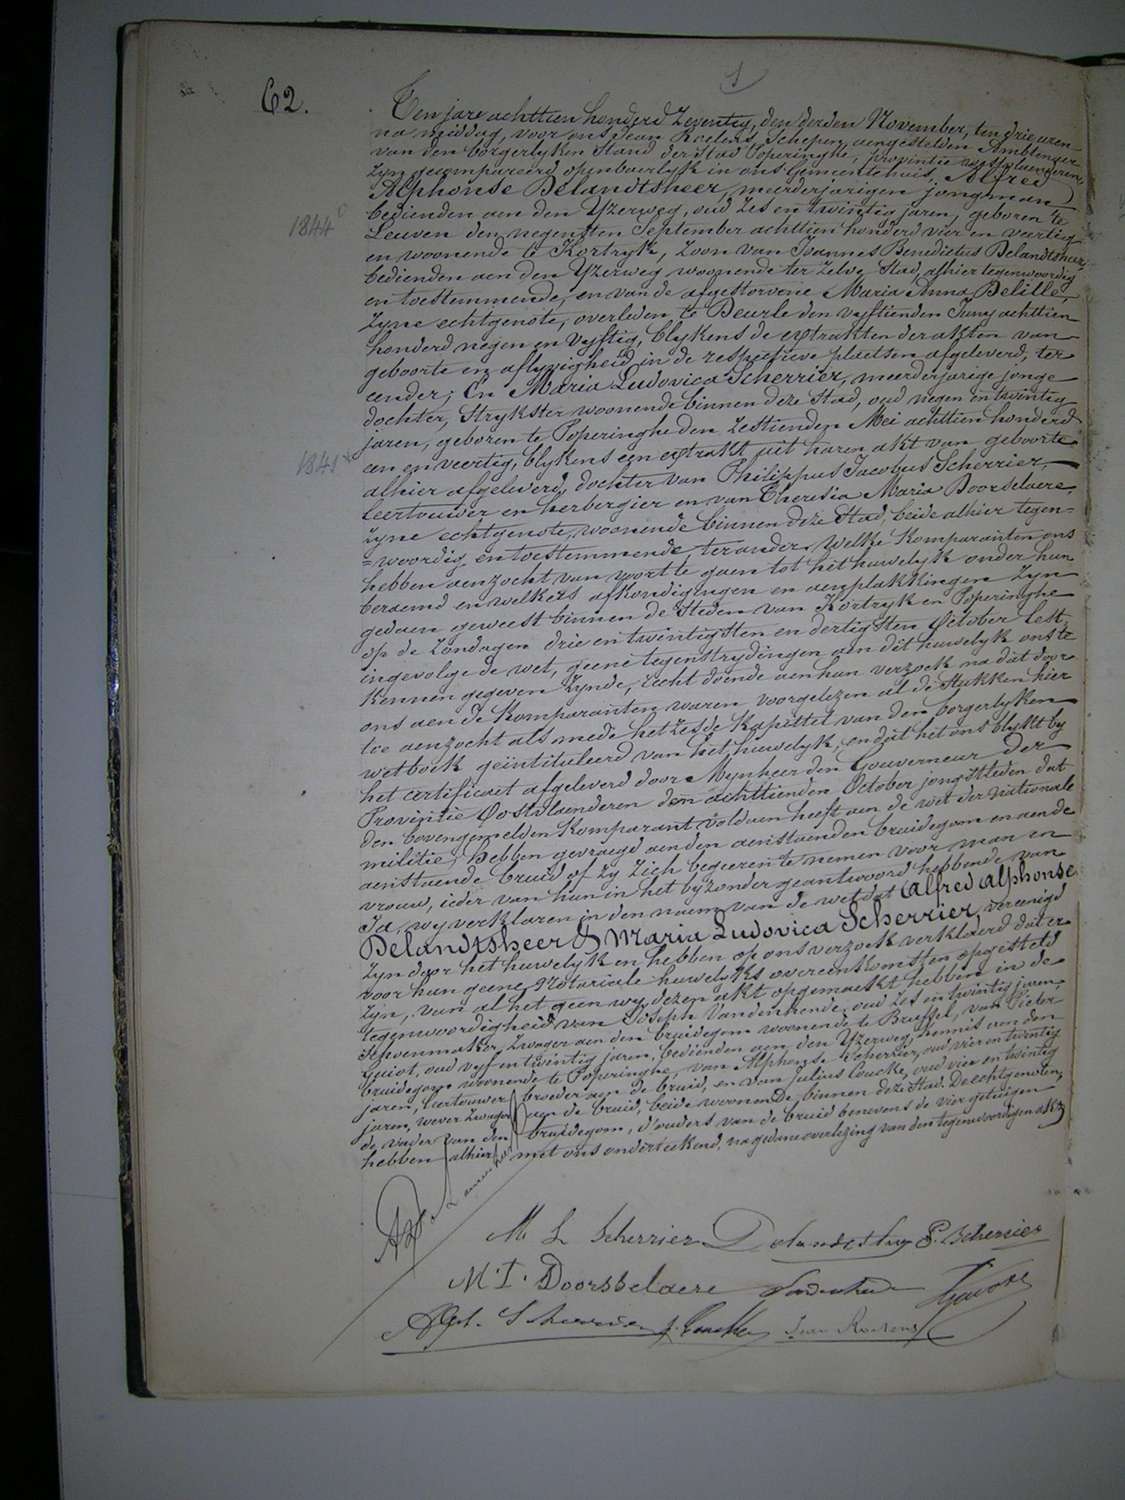 62.
Ten jare achttien honderd Zeventig, den derden November, ten drie uren
na middag, voor ons Jean Roelens, Schepen, aengestelden Ambtenaer
van den borgerlyken Stand der Stad Poperinghe, provintie westvlaenderen,
Zyn gecompareerd openbaerlyk in ons Gemeentehuis, Alfred
Alphonse Delandtsheer, meerderjarigen jongman,
bedienden aen den Yzerweg, oud Zes en twintig jaren, geboren te
1844
Leuven den negensten September achttien honderd vier en veertig
en woonende te Kortryk, Zoon van Joannes Benedictus Delandtsheer,
bedienden aen den Yzerweg woonende ter Zelve Stad, alhier tegenwoordig
en toestemmende, en van de afgestorvene Maria Anna Delille,
Zyne echtgenote, overleden te Deurle den vyftienden Juny achttien
honderd negen en Vyftig, blykens de extrakten der akten van
geboorte en aflyvigheid in de respective plaetsen afgeleverd, ter
ander; En Maria Ludovica Scherrier, meerderjarige jonge
dochter, Strykster woonende binnen deze Stad, oud negen en twintig
jaren, geboren te Poperinghe den Zestienden Mei achttien honderd
1841
een en veertig, blykens een extrakt uit haren akt van geboorte
alhier afgeleverd, dochter van Philippus Jacobus Scherrier,
Leertouwer en herbergier en van Theresia Maria Doorselaere,
Zyne echtgenote, woonende binnen deze Stad, beide alhier tegen=
=woordig en toestemmende, ter ander. Welke Komparanten ons
hebben aenzocht van voort te gaen tot het huwelyk onder hun
beraemd en welkers afkondigingen en aenplakkingen Zyn
gedaen geweest binnen de Steden van Kortryk en Poperinghe
op de Zondagen drie en twintigsten en dertigsten October lest,
ingevolge de wet, geene tegenstrydingen aen dit huwelyk ons te
Kennen gegeven Zynde, recht doende aen hun verzoek na dat door
ons aen de Komparanten waren voorgelezen al de Stukken hier
toe aenzocht als mede het Zesde Kapittel van den borgerlyken
wetboek geïntituleerd van het huwelyk, en dat het ons blykt by
het certificaet afgeleverd door Mynheer den Gouverneur der
Provintie Oostvlaenderen den achttienden October jongstleden dat
den bovengemelden Komparant voldaen heeft aen de wet der Nationale
militie, hebben gevraegd aen den aenstaenden bruidegom en aen de
aenstaende bruid of Zy Zich begeeren te nemen voor man en
vrouw, ieder van hun in het byzonder geantwoord hebbende van
Ja, wy verklaren in den naem van de wet dat Alfred Alphonse
Delandtsheer & Maria Ludovica Scherrier, vereenigd
Zyn door het huwelyk en hebben op ons verzoek verklaerd dat er
voor hun geene Notariale huwelyks overeenkomsten opgesteld
Zyn, van al het geen wy dezen akt opgemaekt hebben in de
tegenwoordigheid van Joseph Vandenhende, oud Zes en twintig jaren,
Schoenmaker, Zwager aen den bruidegom woonende te Brussel, van Pieter
Guiot, oud vyf en twintig jaren, bedienden aen den Yzerweg, Kennis aen den
bruidegom woonende te Poperinghe, van Alphonse Scherrier, oud vier en twintig
jaren, Leertouwer broeder aen de bruid, en van Julius Coucke, oud vier en twintig
jaren, wever Zwager aen de bruid, beide woonende binnen deze Stad. De echtgenoten,
de vader van den bruidegom, d'ouders van de bruid benevens de vier getuigen
hebben alhier met ons onderteekend, na gedane overlezing van den tegenwoordigen akt
M L Scherrier Delandtsheer P. Scherrier
M. T. Doorsselaere Vandenhende Guiot
Alph. Scherrier J. Coucke Jean Roelens